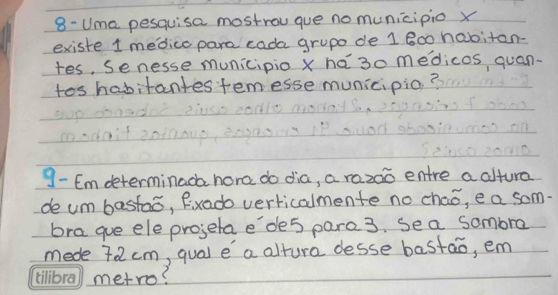 8- Uma pesquisa mostrou que no município X
existe 1 médico para cada grupo de 1 800 habitan-
tes. Se nesse município X há 30 médicos, quan-
tos habitantes tem esse município?
9- Em determinada hora do dia, a razaõ entre a altura
de um bastaõ, fixado verticalmente no chaõ, e a som-
bra que ele projeta é de 5 para 3. Se a sombra
mede 72 cm, qual é a altura desse bastaõ, em
tilibra metro?